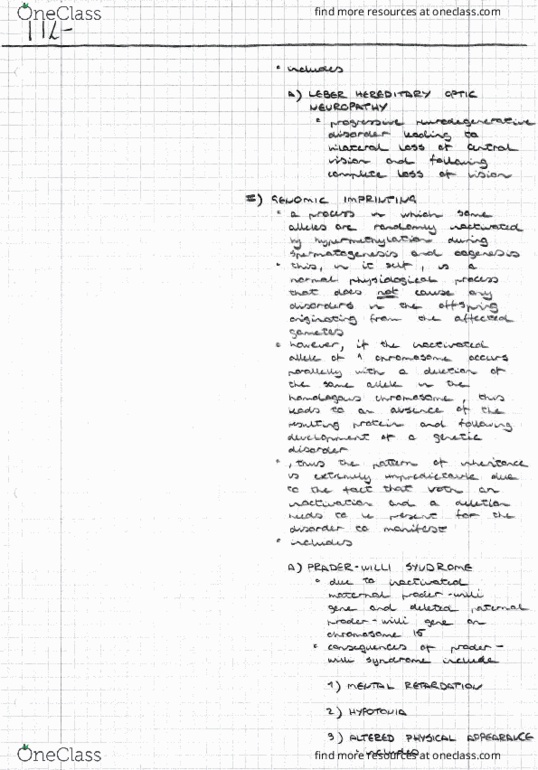 OneClass
find more resources at oneclass.com
112-
• includes
A) LEBER HEREDITARY OPTIC
NEUROPATHY
• progressive neurodegenerative
disorder leading to
bilateral loss of central
vision and following
complete loss of vision
II) GENOMIC IMPRINTING
• a process in which some
alleles are randomly inactivated
by hypermethylation during
spermatogenesis and oogenesis
• this, in it self, is a
normal physiological process
that does not cause any
disorders in the offspring
originating from the affected
gametes
• however, if the inactivated
allele of 1 chromosome occurs
parallelly with a deletion of
the same allele in the
homologous chromosome, this
leads to an absence of the
resulting protein and following
development of a genetic
disorder
•, thus the pattern of inheritance
is extremely impredictable due
to the fact that both an
inactivation and a deletion
needs to be present for the
disorder to manifest
• includes
A) PRADER-WILLI SYNDROME
• due to inactivated
maternal prader-willi
gene and deleted paternal
prader-willi gene on
chromosome 15
• consequences of prader-
willi syndrome include
1) MENTAL RETARDATION
2) HYPOTONIA
3) ALTERED PHYSICAL APPEARANCE
• includes
OneClass
find more resources at oneclass.com